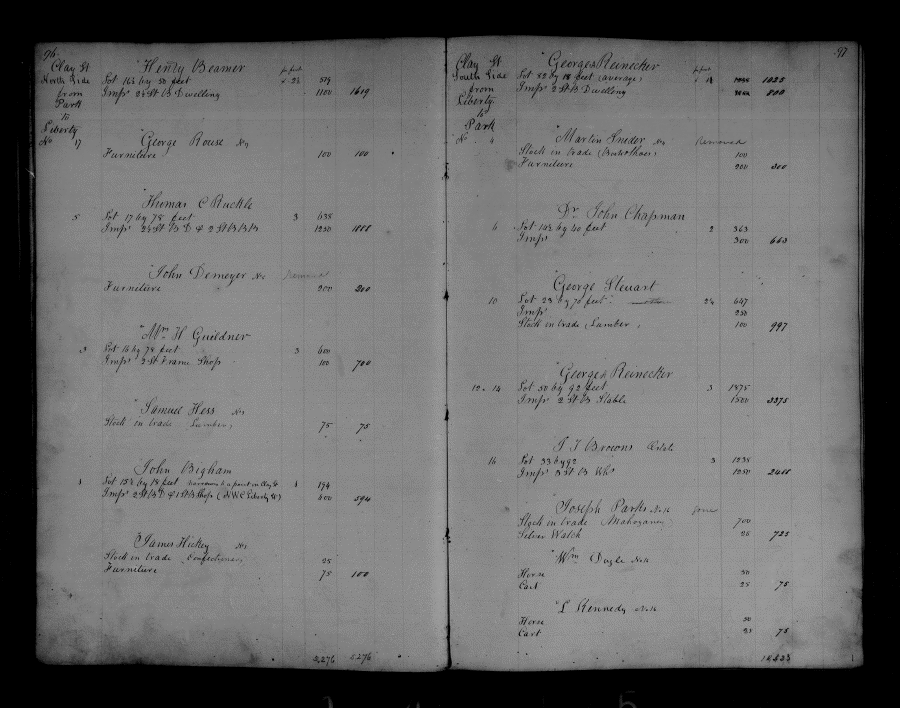 96
Clay St
North Side
from
Park
to
Liberty
No 17
Henry Beamer
per foot
Lot 16½ by 50 feet 579
Imps 2½ St B Dwelling 1100 1619
George Rouse No 7
Furniture 100 100
Thomas C Ruckle
5 Lot 17 by 78 feet 3 638
Imps 2½ St B D & 2 St B B B 1250 1888
John Demoyer No 5 Removed
Furniture 200 200
Wm H Guildner
3 Lot 16 by 78 feet 3 600
Imps 2 St Frame Shop 100 700
Samuel Hess No 3
Stock in trade Lumber 75 75
John Bigham
1 Lot 15½ by 18 feet narrows to a point on Clay St 194
Imps 2 St B D & 1 St B Shop (N W C Liberty St) 400 594
James Hickey No 1
Stock in trade Confectionary 25
Furniture 75 100
5,276 5,276
97
Clay St
South Side
from
Liberty
to
Park
George A Reinecker
per foot
Lot 82 by 18 feet (average) 1025
Imps 2 St B Dwelling 800
No 4 Martin Snider No 4 Removed
Stock in trade 100
Furniture 200 300
Dr John Chapman
6 Lot 14½ by 40 feet 2 363
Imps 300 663
George Steuart
10 Lot 23 by 70 feet 2¾ 647
Imps 250
Stock in trade Lumber 100 997
George A Reinecker
12 & 14 Lot 50 by 92 feet 3 1875
Imps 2 St B Stable 1500 3375
T J Browns Estate
16 Lot 33 by 92 3 1238
Imps 3 St B Whs 1250 2488
Joseph Parks No 16 Gone
Stock in trade Mahogany 700
Silver Watch 25 725
Wm Dogle No 16
Horse 50
Cart 25 75
L Kennedy No 16
Horse 50
Cart 25 75